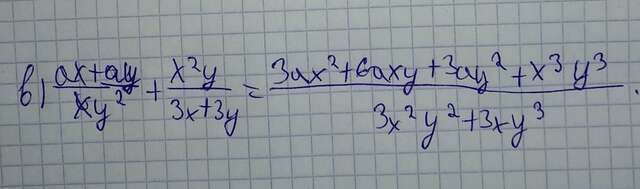 в) (ax+ay)/(xy²) + (x²y)/(3x+3y) = (3ax²+6axy+3ay²+x³y³)/(3x²y²+3xy³).